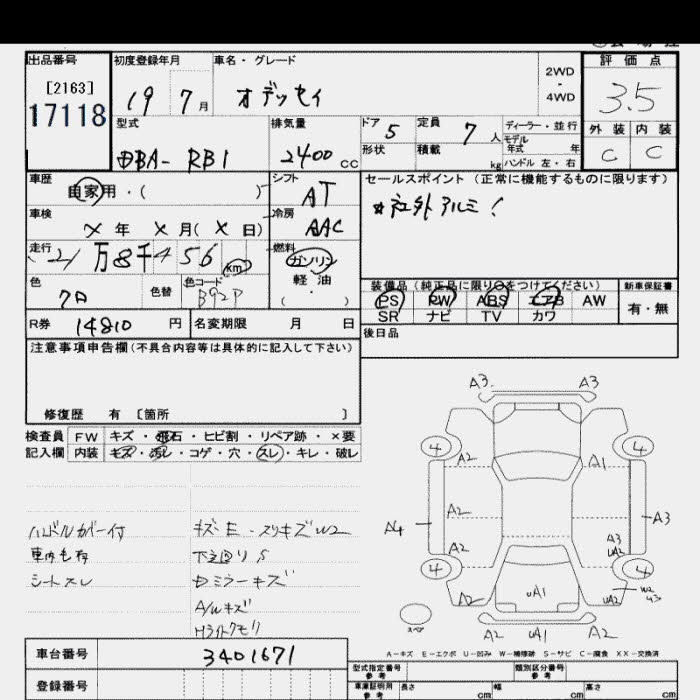 出品番号 初度登録年月 車名・グレード 評価点
[2163] 2WD
17118 19 7月 オデッセイ ・ 3.5
4WD
型式 排気量 ドア 5 定員 7人 ディーラー・並行 外装 内装
モデル年式 年
DBA- RB1 2400cc 形状 積載 kg ハンドル 左・右 C C
車歴 自家用・( ) シフト AT セールスポイント (正常に機能するものに限ります)
車検 × 年 × 月(× 日) 冷房 AAC ☆社外アルミ!
走行 21万8千456 km 燃料 ガソリン
軽油
色 クロ 色替 色コード B92P ( ・ )
装備品(純正品に限り○をつけてください) 新車保証書
PS PW ABS エアB AW 有・無
SR ナビ TV カワ
R券 14810円 名変期限 月 日 後日品
注意事項申告欄(不具合内容等は具体的に記入して下さい)
修復歴 有 [箇所 ]
検査員 FW キズ・飛石・ヒビ割・リペア跡・×要
記入欄 内装 キズ・汚レ・コゲ・穴・スレ・キレ・破レ
ハンドルカバー付 キズ・E・スリキズW2
下廻りS
シートスレ
ミラーキズ
A/Wキズ
Hライトクモリ
A3 A3
4 4
A2 A1
A4 A2 A3
A2 A3
UA2
4 4
A2 UA1 UA2 W2
スペア
A2 UA1 A2
A-キズ E-エクボ U-凹み W-補修跡 S-サビ C-腐食 XX-交換済
車台番号 3401671
型式指定番号 参考 類別区分番号 参考
登録番号 車庫証明用 参考 長さ cm 幅 cm 高さ cm